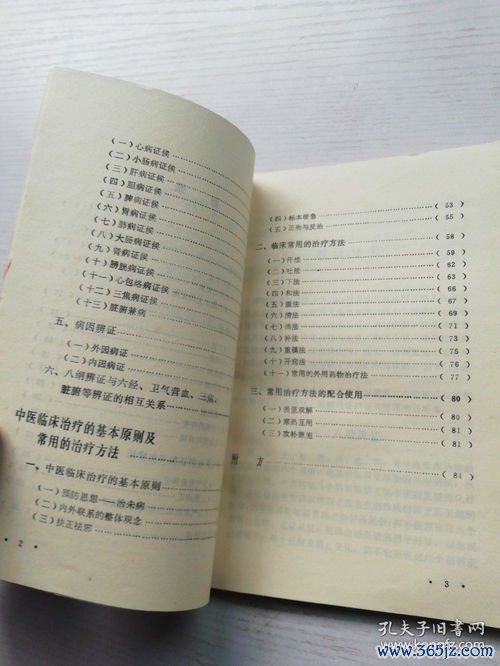 (一)心病证候
(二)小肠病证候
(三)肝病证候
(四)胆病证候
(五)脾病证候
(六)胃病证候
(七)肺病证候
(八)大肠病证候
(九)肾病证候
(十)膀胱病证候
(十一)心包络病证候
(十二)三焦病证候
(十三)脏腑兼病
五、病因辨证
(一)外因病证
(二)内因病证
六、八纲辨证与六经、卫气营血、三焦、
脏腑等辨证的相互关系
中医临床治疗的基本原则及
常用的治疗方法
一、中医临床治疗的基本原则
(一)预防思想——治未病
(二)内外联系的整体观念
(三)扶正祛邪
· 2 ·
(四)标本缓急 (53)
(五)正治与反治 (55)
二、临床常用的治疗方法 (58)
(一)汗法 (59)
(二)吐法 (62)
(三)下法 (63)
(四)和法 (66)
(五)温法 (67)
(六)清法 (69)
(七)消法 (71)
(八)补法 (73)
(九)重镇法 (75)
(十)开窍法 (76)
(十一)常用的外用药物治疗法 (77)
三、常用治疗方法的配合使用 (80)
(一)表里双解 (80)
(二)寒热互用 (81)
(三)攻补兼施 (81)
附 方 (84)
· 3 ·
孔夫子旧书网
www.365jz.com